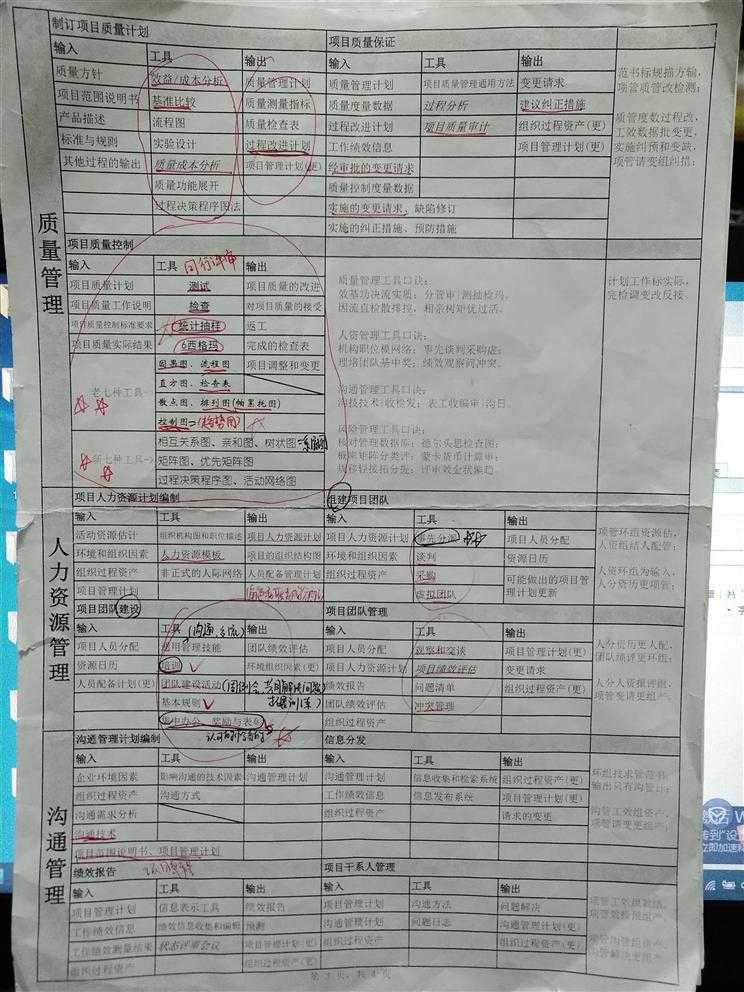 制订项目质量计划 项目质量保证
输入 工具 输出 输入 工具 输出
质量方针 效益/成本分析 质量管理计划 质量管理计划 项目质量管理通用方法 变更请求
项目范围说明书 基准比较 质量测量指标 质量度量数据 过程分析 建议纠正措施
产品描述 流程图 质量检查表 过程改进计划 项目质量审计 组织过程资产(更)
标准与规则 实验设计 过程改进计划 工作绩效信息 项目管理计划(更)
其他过程的输出 质量成本分析 项目管理计划(更) 经审批的变更请求
质量功能展开 质量控制度量数据
过程决策程序图法 实施的变更请求，缺陷修订
实施的纠正措施、预防措施
范书标规描方输，
项管质管改检测；
质管度数过程改，
工效数据批变更，
实施纠预和变缺，
项管请变组纠措；
质量管理
项目质量控制
输入 工具 同行评审 输出
项目质量计划 测试 项目质量的改进
项目质量工作说明 检查 对项目质量的接受
项目质量控制标准要求 统计抽样 返工
项目质量实际结果 6西格玛 完成的检查表
因果图、流程图 项目调整和变更
直方图、检查表
老七种工具 散点图、排列图(帕累托图)
控制图 (趋势图)
相互关系图、亲和图、树状图
新七种工具 矩阵图、优先矩阵图
过程决策程序图、活动网络图
质量管理工具口诀：
效基功决流实质；分管审|测抽检玛，
因流直检散排控，相亲树矩优过活。
人资管理工具口诀：
机构职位模网络；事先谈判采购虚；
理培团队基中奖；绩效观察问冲突。
沟通管理工具口诀：
风险管理工具口诀：
计划工作标实际，
完检调变改反接。
人力资源管理
项目人力资源计划编制 组建项目团队
输入 工具 输出 输入 工具 输出
活动资源估计 组织机构图和职位描述 项目人力资源计划 项目人力资源计划 事先分派 项目人员分配
环境和组织因素 人力资源模板 项目的组织结构图 环境和组织因素 谈判 资源日历
组织过程资产 非正式的人际网络 人员配备管理计划 组织过程资产 采购 可能做出的项目管
项目管理计划 虚拟团队 理计划更新
项管环组资源估，
人资组结人配管；
人资环组为输入，
人分资历更项管；
项目团队建设 项目团队管理
输入 工具 输出 输入 工具 输出
项目人员分配 通用管理技能 团队绩效评估 项目人员分配 观察和交谈 项目管理计划(更)
资源日历 培训 环境组织因素(更) 项目人力资源计划 项目绩效评估 变更请求
人员配备计划(更) 团队建设活动 绩效报告 问题清单 组织过程资产(更)
基本规则 团队绩效评估 冲突管理
集中办公、奖励与表彰 组织过程资产
人分资历更人配，
团队绩评更环组；
人分人资报评组，
项管变更请组产；
沟通管理
沟通管理计划编制 信息分发
输入 工具 输出 输入 工具 输出
企业环境因素 影响沟通的技术因素 沟通管理计划 沟通管理计划 信息收集和检索系统 组织过程资产(更)
组织过程资产 沟通方式 工作绩效信息 信息发布系统 项目管理计划(更)
沟通需求分析 组织过程资产 请求的变更
沟通技术
项目范围说明书、项目管理计划
环组技术管范书，
输出只有沟管计；
沟管工效组资产，
项管请变更组产；
绩效报告 项目干系人管理
输入 工具 输出 输入 工具 输出
项目管理计划 信息表示工具 绩效报告 项目管理计划 沟通方法 问题解决
工作绩效信息 绩效信息收集和编辑 预测 沟通管理计划 问题日志 沟通管理计划(更)
工作绩效测量结果 状态评审会议 项目管理计划(更) 组织过程资产 组织过程资产(更)
组织过程资产 组织过程资产(更) 项目管理计划(更)
第 3 页，共 4 页
激活 W
转到"设
立即加速